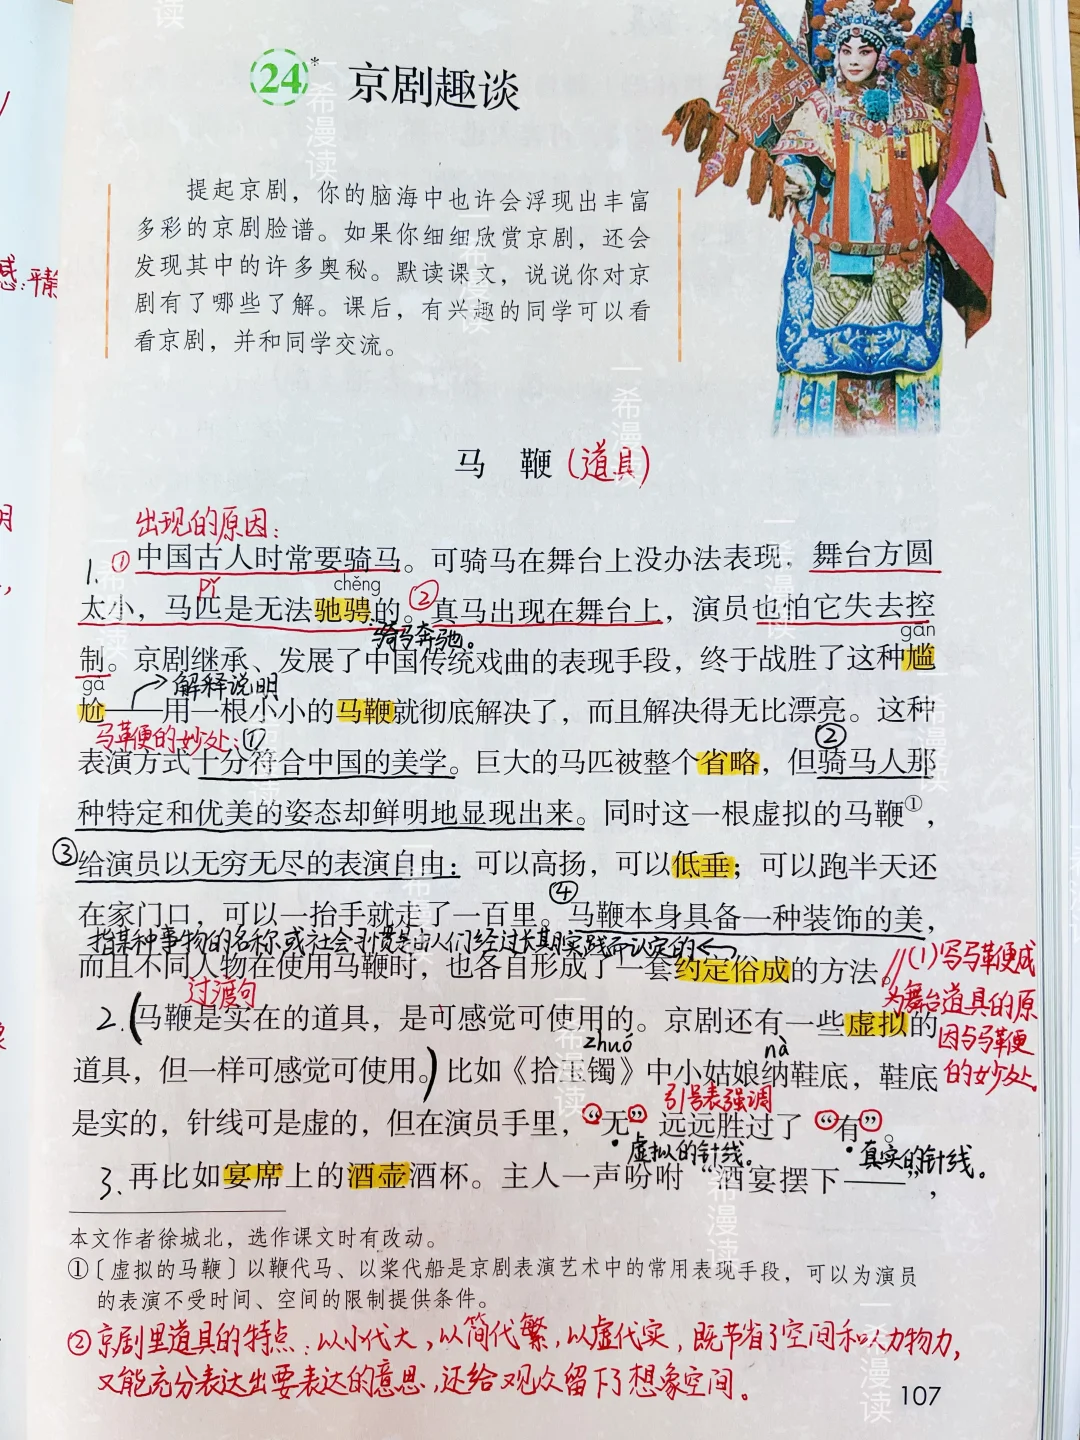 24*
京剧趣谈
提起京剧，你的脑海中也许会浮现出丰富
多彩的京剧脸谱。如果你细细欣赏京剧，还会
发现其中的许多奥秘。默读课文，说说你对京
剧有了哪些了解。课后，有兴趣的同学可以看
看京剧，并和同学交流。
感：平静
马 鞭（道具）
出现的原因：
1. ①中国古人时常要骑马。可骑马在舞台上没办法表现，舞台方圆
pǐ
chěng
太小，马匹是无法驰骋的。②真马出现在舞台上，演员也怕它失去控
骑马奔驰。
gān
制。京剧继承、发展了中国传统戏曲的表现手段，终于战胜了这种尴
gà
解释说明
尬——用一根小小的马鞭就彻底解决了，而且解决得无比漂亮。这种
马鞭的妙处：①
②
表演方式十分符合中国的美学。巨大的马匹被整个省略，但骑马人那
种特定和优美的姿态却鲜明地显现出来。同时这一根虚拟的马鞭①，
③给演员以无穷无尽的表演自由：可以高扬，可以低垂；可以跑半天还
④
在家门口，可以一抬手就走了一百里。马鞭本身具备一种装饰的美，
指某种事物的名称或社会习惯是由人们经过长期实践而认定的
而且不同人物在使用马鞭时，也各自形成了一套约定俗成的方法。//
(1)写马鞭成
为舞台道具的原
因与马鞭
的妙处。
过渡句
2.(马鞭是实在的道具，是可感觉可使用的。京剧还有一些虚拟的
zhuó
nà
道具，但一样可感觉可使用。)比如《拾玉镯》中小姑娘纳鞋底，鞋底
引号表强调
是实的，针线可是虚的，但在演员手里，“无”远远胜过了“有”。
·虚拟的针线。
·真实的针线。
3.再比如宴席上的酒壶酒杯。主人一声吩咐“酒宴摆下——”，
本文作者徐城北，选作课文时有改动。
①〔虚拟的马鞭〕以鞭代马、以桨代船是京剧表演艺术中的常用表现手段，可以为演员
的表演不受时间、空间的限制提供条件。
②京剧里道具的特点：以小代大，以简代繁，以虚代实，既节省了空间和人力物力，
又能充分表达出要表达的意思，还给观众留下了想象空间。
107
一希漫读